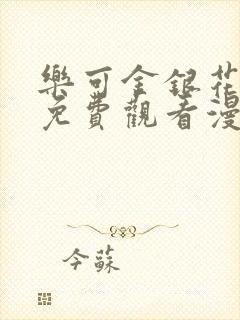 樂可金銀花
免費觀看漫
今蘇